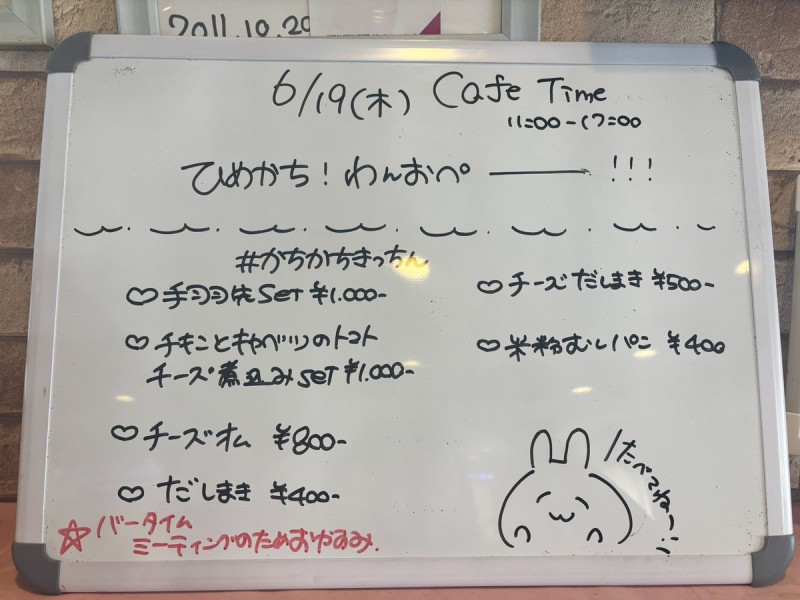 2011.10.20
6/19(木) Cafe Time
11:00-17:00
ひめかち！わんおぺ――!!!
#かちかちきっちん
♡手羽先set ¥1.000-
♡チキンとキャベツのトマト
チーズ煮込みset ¥1.000-
♡チーズオム ¥800-
♡だしまき ¥400-
♡チーズだしまき ¥500-
♡米粉むしパン ¥400
たべてね〜!!
☆バータイム
ミーティングのためおやすみ.